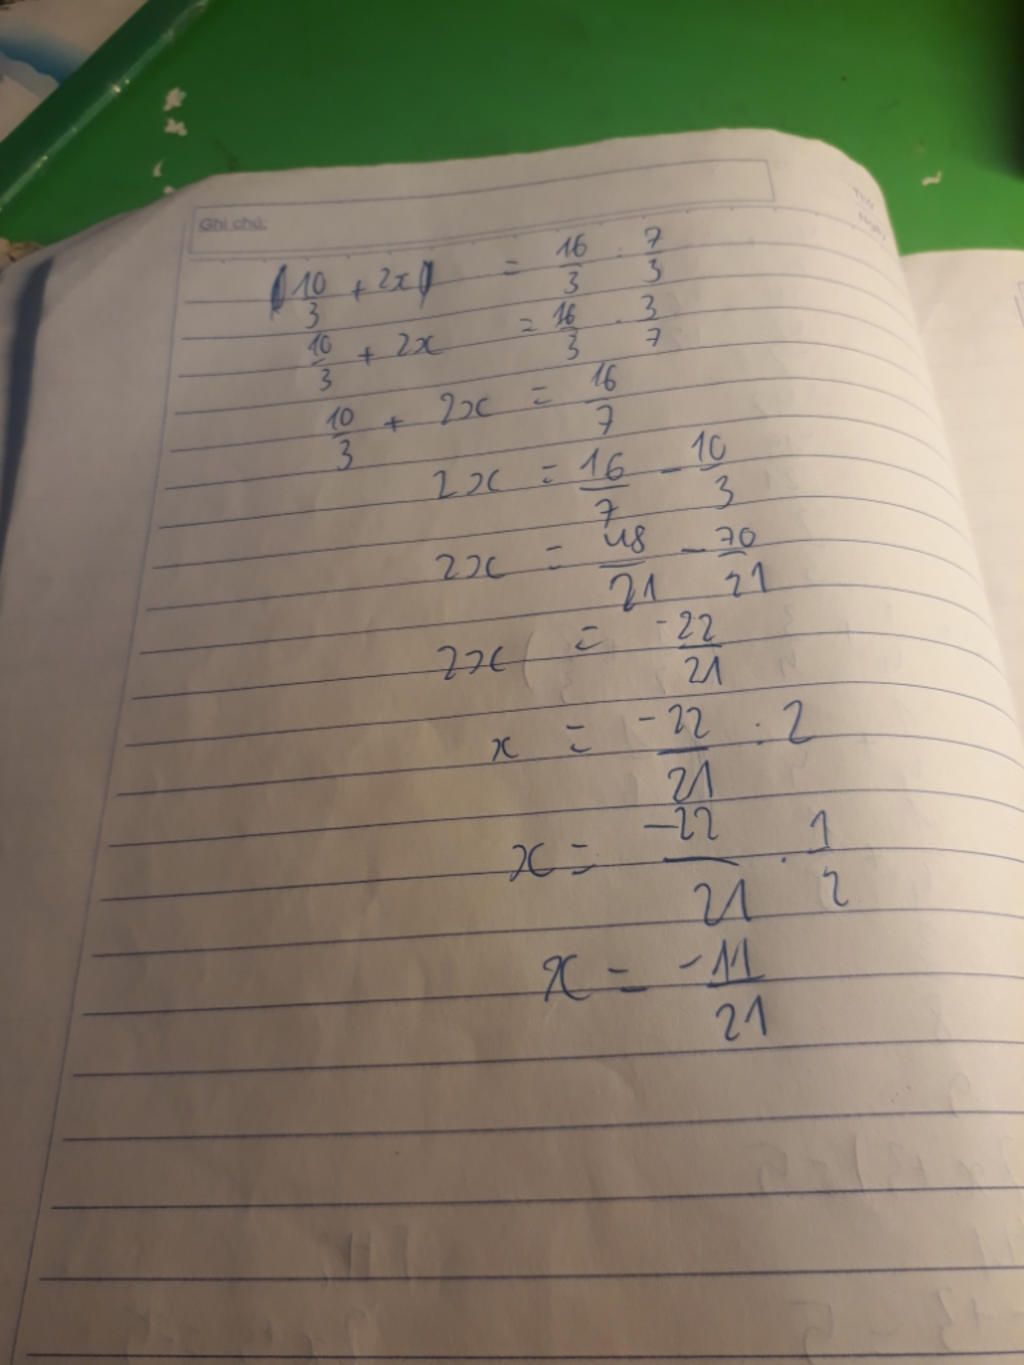 Ghi chú:
(10/3 + 2x) = 16/3 : 7/3
10/3 + 2x = 16/3 . 3/7
10/3 + 2x = 16/7
2x = 16/7 - 10/3
2x = 48/21 - 70/21
2x = -22/21
x = -22/21 : 2
x = -22/21 . 1/2
x = -11/21